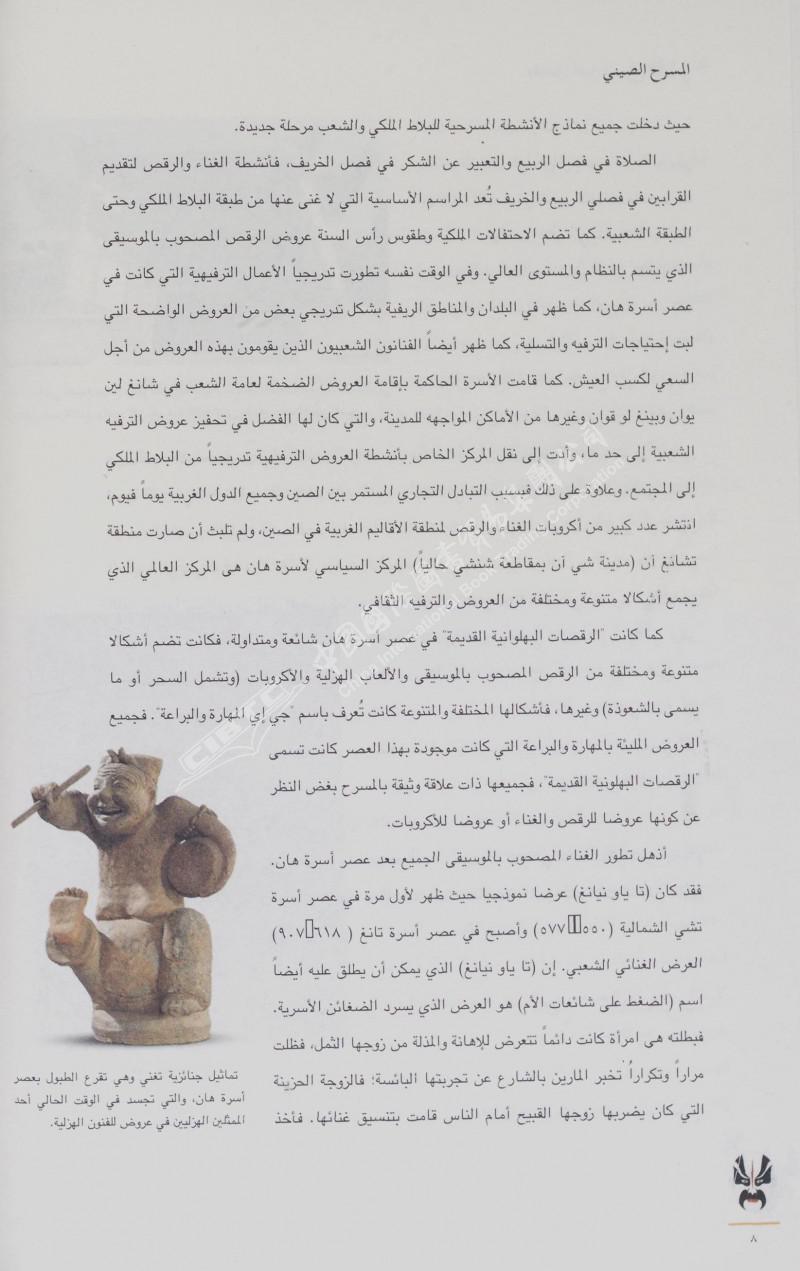 المسرح الصيني
حيث دخلت جميع نماذج الأنشطة المسرحية للبلاط الملكي والشعب مرحلة جديدة.
الصلاة في فصل الربيع والتعبير عن الشكر في فصل الخريف، فأنشطة الغناء والرقص لتقديم
القرابين في فصلي الربيع والخريف تُعد المراسم الأساسية التي لا غنى عنها من طبقة البلاط الملكي وحتى
الطبقة الشعبية. كما تضم الاحتفالات الملكية وطقوس رأس السنة عروض الرقص المصحوب بالموسيقى
الذي يتسم بالنظام والمستوى العالي. وفي الوقت نفسه تطورت تدريجياً الأعمال الترفيهية التي كانت في
عصر أسرة هان، كما ظهر في البلدان والمناطق الريفية بشكل تدريجي بعض من العروض الواضحة التي
لبت إحتياجات الترفيه والتسلية، كما ظهر أيضاً الفنانون الشعبيون الذين يقومون بهذه العروض من أجل
السعي لكسب العيش. كما قامت الأسرة الحاكمة بإقامة العروض الضخمة لعامة الشعب في شانغ لين
يوان وبينغ لو قوان وغيرها من الأماكن المواجهه للمدينة، والتي كان لها الفضل في تحفيز عروض الترفيه
الشعبية إلى حد ما، وأدت إلى نقل المركز الخاص بأنشطة العروض الترفيهية تدريجياً من البلاط الملكي
إلى المجتمع. وعلاوة على ذلك فبسبب التبادل التجاري المستمر بين الصين وجميع الدول الغربية يوماً فيوم،
انتشر عدد كبير من أكروبات الغناء والرقص لمنطقة الأقاليم الغربية في الصين، ولم تلبث أن صارت منطقة
تشانغ أن (مدينة شي أن بمقاطعة شنشي حالياً) المركز السياسي لأسرة هان هى المركز العالمي الذي
يجمع أشكالا متنوعة ومختلفة من العروض والترفيه الثقافي.
كما كانت "الرقصات البهلوانية القديمة" في عصر أسرة هان شائعة ومتداولة، فكانت تضم أشكالا
متنوعة ومختلفة من الرقص المصحوب بالموسيقى والألعاب الهزلية والأكروبات (وتشمل السحر أو ما
يسمى بالشعوذة) وغيرها، فأشكالها المختلفة والمتنوعة كانت تُعرف باسم "جي إي المهارة والبراعة". فجميع
العروض المليئة بالمهارة والبراعة التي كانت موجودة بهذا العصر كانت تسمى
"الرقصات البهلونية القديمة"، فجميعها ذات علاقة وثيقة بالمسرح بغض النظر
عن كونها عروضا للرقص والغناء أو عروضا للأكروبات.
أذهل تطور الغناء المصحوب بالموسيقى الجميع بعد عصر أسرة هان.
فقد كان (تا ياو نيانغ) عرضا نموذجيا حيث ظهر لأول مرة في عصر أسرة
تشي الشمالية (٥٥٠ ٥٧٧) وأصبح في عصر أسرة تانغ ( ٦١٨ ٩٠٧)
العرض الغنائي الشعبي. إن (تا ياو نيانغ) الذي يمكن أن يطلق عليه أيضاً
اسم (الضغط على شائعات الأم) هو العرض الذي يسرد الضغائن الأسرية.
فبطلته هى امرأة كانت دائماً تتعرض للإهانة والمذلة من زوجها الثمل، فظلت
مراراً وتكراراُ تخبر المارين بالشارع عن تجربتها البائسة؛ فالزوجة الحزينة
التي كان يضربها زوجها القبيح أمام الناس قامت بتنسيق غنائها. فأخذ
تماثيل جنائزية تغني وهي تقرع الطبول بعصر
أسرة هان، والتي تجسد في الوقت الحالي أحد
الممثلين الهزليين في عروض للفنون الهزلية.
٨